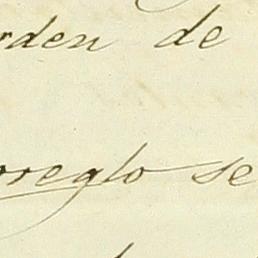 rden de
rreglo se